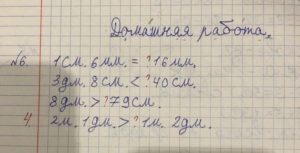 Дома́шняя рабо́та.
№6. 1см. 6мм. = ?16мм.
3дм. 8см. < ?40см.
8дм. > ?79см.
4. 2м. 1дм. > ?1м. 2дм.